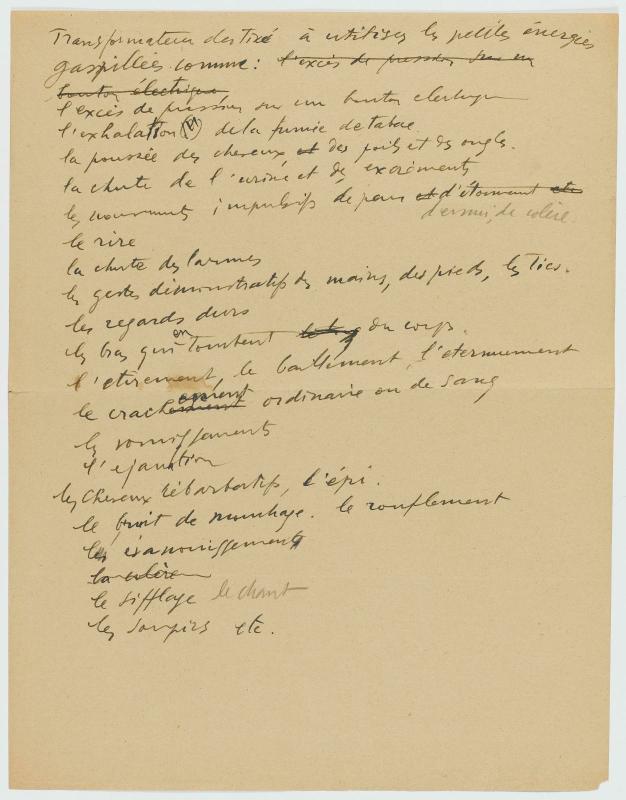 Transformateur destiné à utiliser les petites énergies
gaspillées comme : l'excès de pression sur un
bouton électrique
l'excès de pression sur un bouton électrique
l'exhalation de la fumée de tabac
la poussée des cheveux et des poils et des ongles.
la chute de l'urine et des excréments
les mouvements impulsifs de peur et d'étonnement etc
d'ennui, de colère.
le rire
la chute des larmes
les gestes démonstratifs des mains, des pieds, les tics.
les regards durs
les bras qui en tombent du corps.
l'étirement, le baillement, l'éternuement
le crachement ordinaire ou de sang
les vomissements
l'éjaculation
les cheveux rébarbatifs, l'épi.
le bruit de mouchage. le ronflement
les évanouissements
la colère
le sifflage le chant
les soupirs etc.